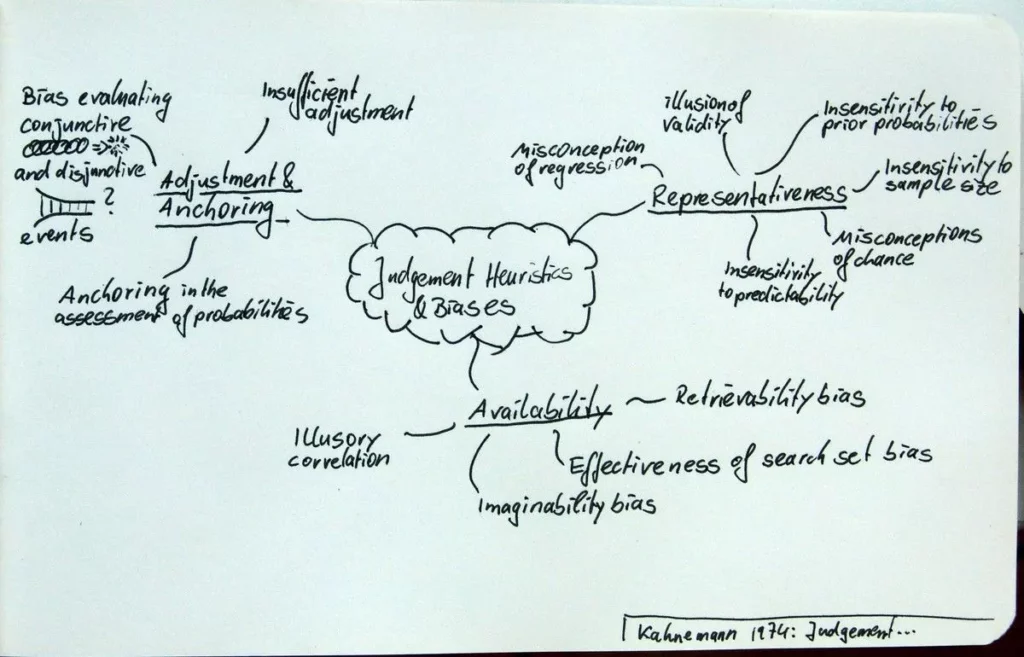 Bias evaluating
conjunctive
and disjunctive
?
events
Insufficient
adjustment
Adjustment &
Anchoring
Anchoring in the
assessment of probabilities
Judgement Heuristics
& Biases
illusion of
validity
Insensitivity to
prior probabilities
Misconception
of regression
Insensitivity to
sample size
Representativeness
Misconceptions
of chance
Insensitivity
to predictability
Availability
Retrievability bias
Illusory
correlation
Effectiveness of search set bias
Imaginability bias
Kahnemann 1974: Judgement...